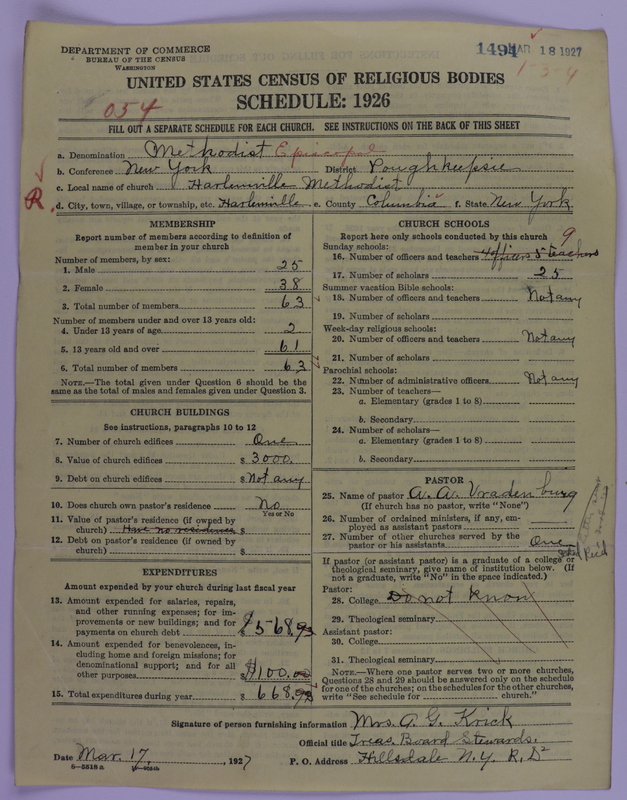 DEPARTMENT OF COMMERCE
BUREAU OF THE CENSUS
WASHINGTON
1494 MAR 18 1927
1-5-4
UNITED STATES CENSUS OF RELIGIOUS BODIES
SCHEDULE: 1926
054
FILL OUT A SEPARATE SCHEDULE FOR EACH CHURCH. SEE INSTRUCTIONS ON THE BACK OF THIS SHEET
a. Denomination Methodist Episcopal
b. Conference New York District Poughkeepsie
c. Local name of church Harlemville Methodist
R. d. City, town, village, or township, etc. Harlemville e. County Columbia f. State New York
MEMBERSHIP
Report number of members according to definition of
member in your church
Number of members, by sex:
1. Male 25
2. Female 38
3. Total number of members 63
Number of members under and over 13 years old:
4. Under 13 years of age 2
5. 13 years old and over 61
6. Total number of members 63
NOTE.—The total given under Question 6 should be
same as the total of males and females given under Question 3.
CHURCH BUILDINGS
See instructions, paragraphs 10 to 12
7. Number of church edifices One
8. Value of church edifices $ 3000.
9. Debt on church edifices $ Not any
10. Does church own pastor's residence No
Yes or No
11. Value of pastor's residence (if owned by
church) Have no residence $
12. Debt on pastor's residence (if owned by
church) $
EXPENDITURES
Amount expended by your church during last fiscal year
13. Amount expended for salaries, repairs,
and other running expenses; for im-
provements or new buildings; and for
payments on church debt $568.93
14. Amount expended for benevolences, in-
cluding home and foreign missions; for
denominational support; and for all
other purposes $100.00
15. Total expenditures during year $ 668.93
CHURCH SCHOOLS
Report here only schools conducted by this church
9
Sunday schools:
16. Number of officers and teachers 4 officers 5 teachers
17. Number of scholars 25
Summer vacation Bible schools:
18. Number of officers and teachers Not any
19. Number of scholars
Week-day religious schools:
20. Number of officers and teachers Not any
21. Number of scholars
Parochial schools:
22. Number of administrative officers Not any
23. Number of teachers—
a. Elementary (grades 1 to 8)
b. Secondary
24. Number of scholars—
a. Elementary (grades 1 to 8)
b. Secondary
PASTOR
25. Name of pastor A. A. Vradenburg
(If church has no pastor, write "None")
26. Number of ordained ministers, if any, em-
ployed as assistant pastors
27. Number of other churches served by the
pastor or his assistants One
If pastor (or assistant pastor) is a graduate of a college or
theological seminary, give name of institution below. (If
not a graduate, write "No" in the space indicated.)
Pastor:
28. College Do not know
29. Theological seminary
Assistant pastor:
30. College
31. Theological seminary
NOTE.—Where one pastor serves two or more churches,
Questions 28 and 29 should be answered only on the schedule
for one of the churches; on the schedules for the other churches,
write "See schedule for church."
Signature of person furnishing information Mrs. A. G. Krick
Official title Treas. Board Stewards.
Date Mar. 17, 1927 P. O. Address Hillsdale N.Y. R. D 2
8-5518 a